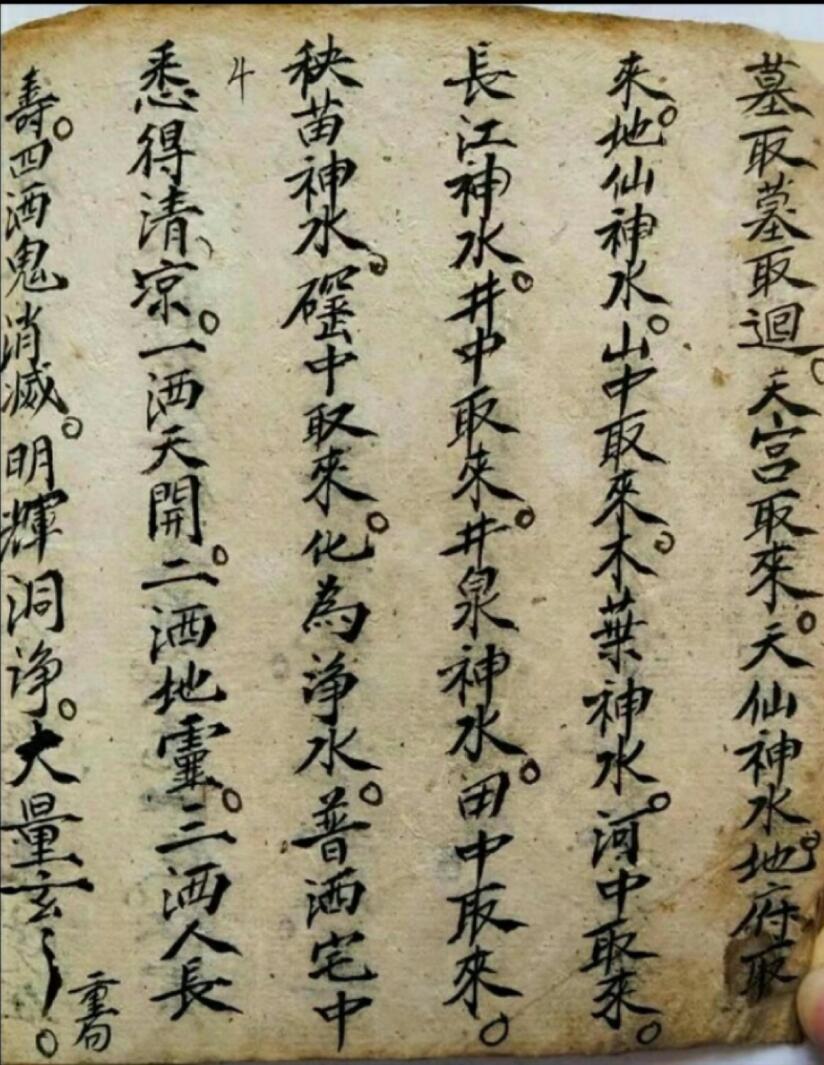 墓取墓取迴。天宮取來。天仙神水。地府取
來。地仙神水。山中取來。木葉神水。河中取來。
長江神水。井中取來。井泉神水。田中取來。
秧苗神水。礶中取來。化為淨水。普洒宅中
悉得清凉。一洒天開。二洒地靈。三洒人長
壽。四洒鬼消滅。明輝洞净。大量玄